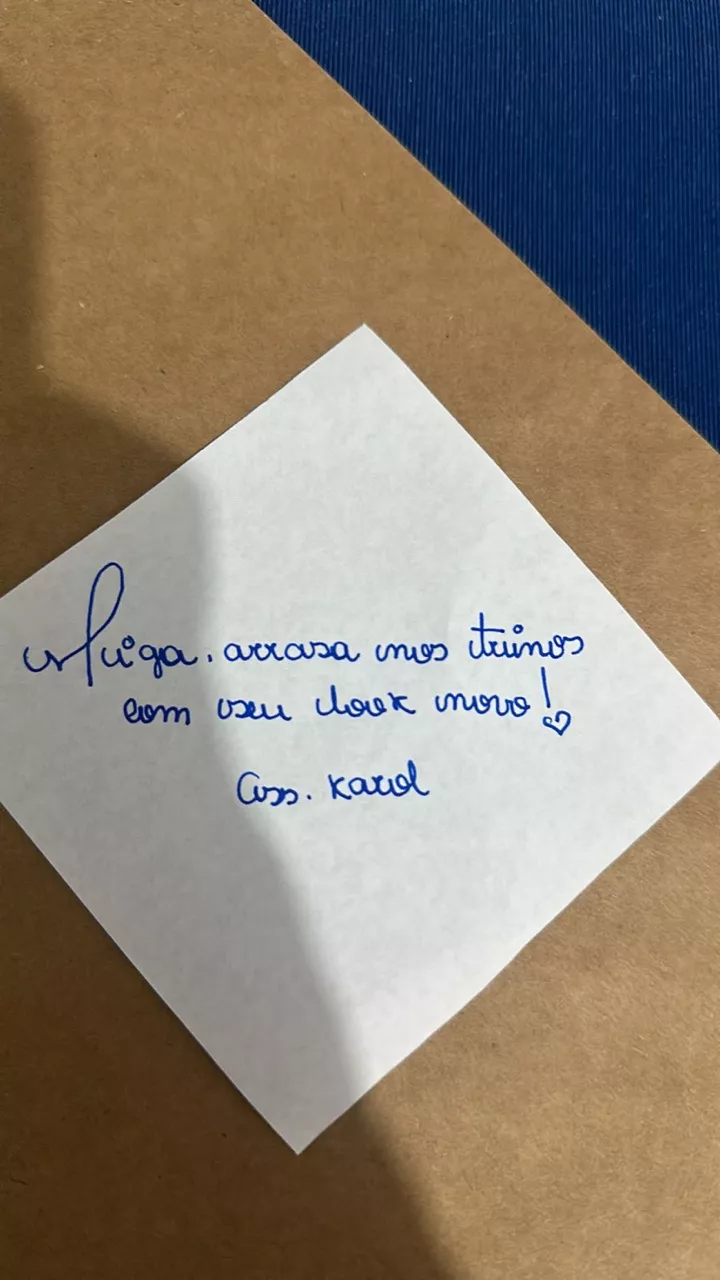 Miga, arrasa nos treinos
com seu look novo!
Ass. Karol